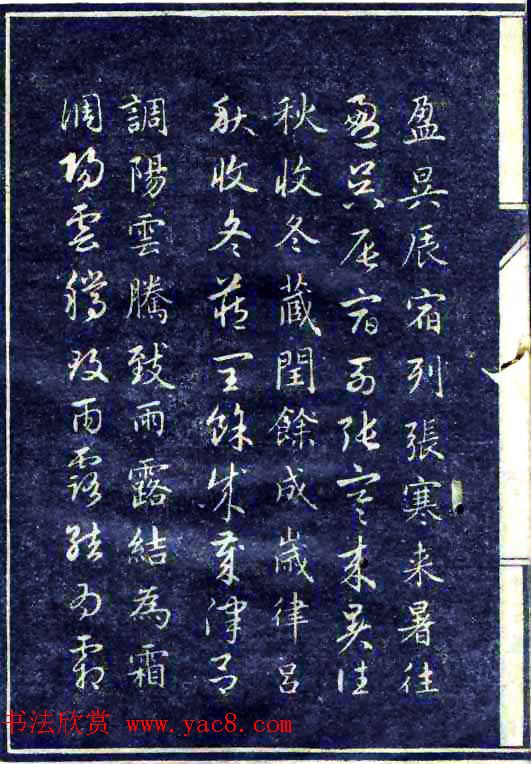 盈昃辰宿列張寒来暑往
盈昃辰宿列張寒来暑往
秋收冬藏閏餘成歲律呂
秋收冬藏閏餘成歲律呂
調陽雲騰致雨露結為霜
調陽雲騰致雨露結為霜
书法欣赏 www.yac8.com